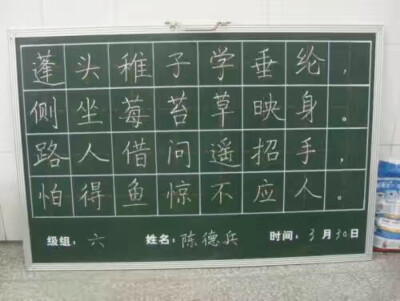 蓬头稚子学垂纶，
侧坐莓苔草映身。
路人借问遥招手，
怕得鱼惊不应人。
级组：六 姓名：陈德兵 时间：3月30日